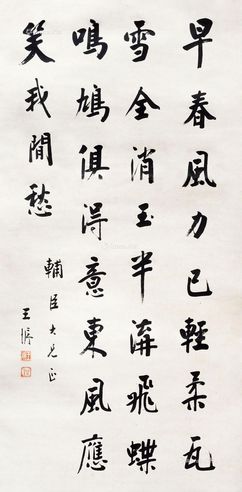 早春風力已輕柔瓦
雪全消玉半溝飛蝶
鳴鳩俱得意東風應
笑我閒愁
輔臣大兄正
王